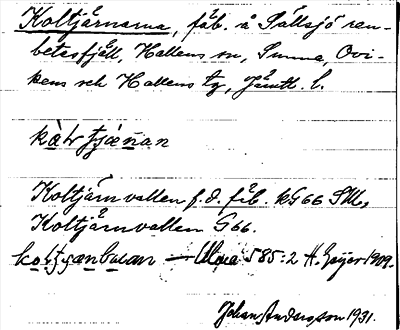 Koltjärnarna, fäb. å Sållsjö ren-
betesfjäll, Hallens sn, Sunne, Ovi-
kens och Hallens tg, Jämtl. l.
Koltjärnvallen f.d. fäb. kG66 SM.,
Koltjärnvallen G66.
Ulma 585:2 H. Geijer 1909.
Johan Andersson 1931.